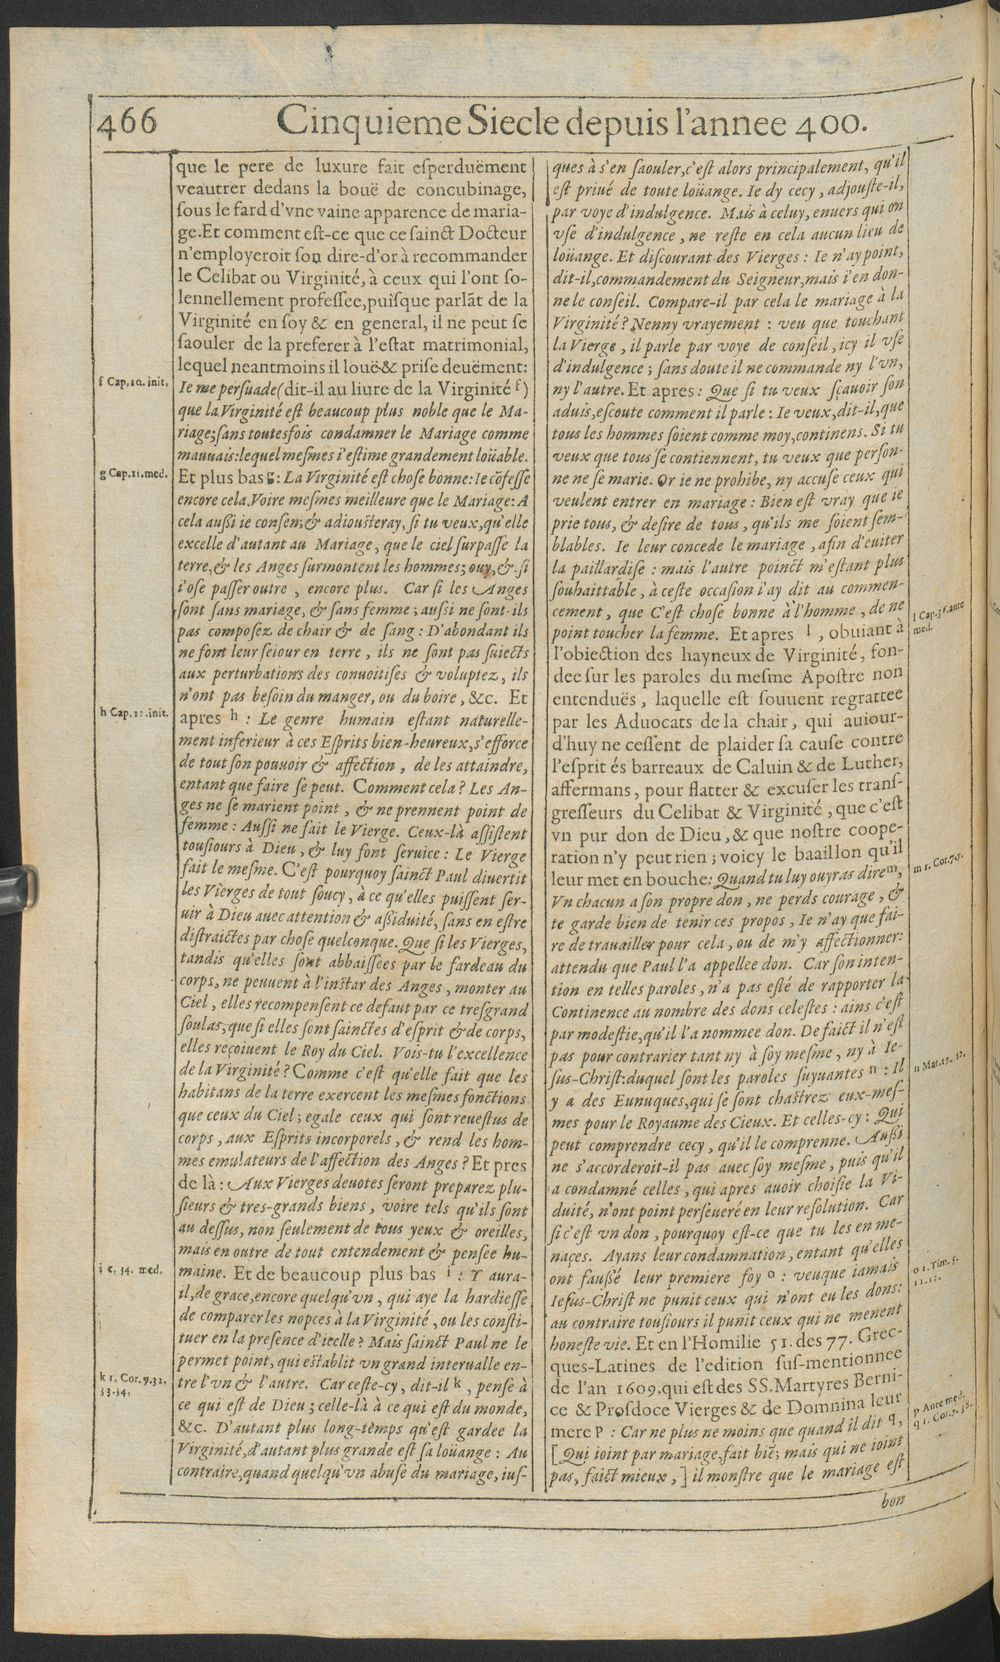 466
Cinquieme Siecle depuis l'annee 400.
que le pere de luxure fait esperduëment
veautrer dedans la bouë de concubinage,
sous le fard d'vne vaine apparence de maria-
ge. Et comment est-ce que ce sainct Docteur
n'employeroit son dire-d'or à recommander
le Celibat ou Virginité, à ceux qui l'ont so-
lennellement professee, puisque parlãt de la
Virginité en soy & en general, il ne peut se
saouler de la preferer à l'estat matrimonial,
lequel neantmoins il louë & prise deuëment:
f Cap. 10. init.
Ie me persuade (dit-il au liure de la Virginité f)
que la Virginité est beaucoup plus noble que le Ma-
riage; sans toutesfois condamner le Mariage comme
mauuais: lequel mesmes i'estime grandement loüable.
g Cap. 11. med.
Et plus bas g: La Virginité est chose bonne: Ie cõfesse
encore cela. Voire mesmes meilleure que le Mariage: A
cela aussi ie consen; & adiousteray, si tu veux, qu'elle
excelle d'autant au Mariage, que le ciel surpasse la
terre, & les Anges surmontent les hommes; ouy, & si
i'ose passer outre, encore plus. Car si les Anges
sont sans mariage, & sans femme; aussi ne sont-ils
pas composez de chair & de sang: D'abondant ils
ne font leur seiour en terre, ils ne sont pas suiects
aux perturbations des conuoitises & voluptez, ils
n'ont pas besoin du manger, ou du boire, &c. Et
h Cap. 11. init.
apres h: Le genre humain estant naturelle-
ment inferieur à ces Esprits bien-heureux, s'efforce
de tout son pouuoir & affection, de les attaindre,
entant que faire se peut. Comment cela? Les An-
ges ne se marient point, & ne prennent point de
femme: Aussi ne fait le Vierge. Ceux-là assistent
tousiours à Dieu, & luy font seruice: Le Vierge
fait le mesme. C'est pourquoy sainct Paul diuertit
les Vierges de tout soucy, à ce qu'elles puissent ser-
uir à Dieu auec attention & assiduité, sans en estre
distraictes par chose quelconque. Que si les Vierges,
tandis qu'elles sont abbaissees par le fardeau du
corps, ne peuuent à l'instar des Anges, monter au
Ciel, elles recompensent ce defaut par ce tresgrand
soulas; que si elles sont sainctes d'esprit & de corps,
elles reçoiuent le Roy du Ciel. Vois-tu l'excellence
de la Virginité? Comme c'est qu'elle fait que les
habitans de la terre exercent les mesmes fonctions
que ceux du Ciel; egale ceux qui sont reuestus de
corps, aux Esprits incorporels, & rend les hom-
mes emulateurs de l'affection des Anges? Et pres
de là: Aux Vierges deuotes seront preparez plu-
sieurs & tres-grands biens, voire tels qu'ils sont
au dessus, non seulement de tous yeux & oreilles,
mais en outre de tout entendement & pensee hu-
i c. 34. med.
maine. Et de beaucoup plus bas i: Y aura-
il, de grace, encore quelqu'vn, qui aye la hardiesse
de comparer les nopces à la Virginité, ou les consti-
tuer en la presence d'icelle? Mais sainct Paul ne le
permet point, qui establit vn grand interualle en-
k 1. Cor. 7. 32.
33. 34.
tre l'vn & l'autre. Car ceste-cy, dit-il k, pense à
ce qui est de Dieu; celle-là à ce qui est du monde,
&c. D'autant plus long-temps qu'est gardee la
Virginité, d'autant plus grande est sa loüange: Au
contraire, quand quelqu'vn abuse du mariage, ius-
ques à s'en saouler, c'est alors principalement, qu'il
est priué de toute loüange. Ie dy cecy, adjouste-il,
par voye d'indulgence. Mais à celuy, enuers qui on
vse d'indulgence, ne reste en cela aucun lieu de
loüange. Et discourant des Vierges: Ie n'ay point,
dit-il, commandement du Seigneur, mais i'en don-
ne le conseil. Compare-il par cela le mariage à la
Virginité? Nenny vrayement: veu que touchant
la Vierge, il parle par voye de conseil, icy il vse
d'indulgence; sans doute il ne commande ny l'vn,
ny l'autre. Et apres: Que si tu veux sçauoir son
aduis, escoute comment il parle: Ie veux, dit-il, que
tous les hommes soient comme moy, continens. Si tu
veux que tous se contiennent, tu veux que person-
ne ne se marie. Or ie ne prohibe, ny accuse ceux qui
veulent entrer en mariage: Bien est vray que ie
prie tous, & desire de tous, qu'ils me soient sem-
blables. Ie leur concede le mariage, afin d'euiter
la paillardise: mais l'autre poinct m'estant plus
souhaittable, à ceste occasion i'ay dit au commen-
cement, que C'est chose bonne à l'homme, de ne
l Cap. 36. ante
med.
point toucher la femme. Et apres l, obuiant à
l'obiection des hayneux de Virginité, fon-
dee sur les paroles du mesme Apostre non
entenduës, laquelle est souuent regrattee
par les Aduocats de la chair, qui auiour-
d'huy ne cessent de plaider sa cause contre
l'esprit és barreaux de Caluin & de Luther,
affermans, pour flatter & excuser les trans-
gresseurs du Celibat & Virginité, que c'est
vn pur don de Dieu, & que nostre coope-
ration n'y peut rien; voicy le baaillon qu'il
m 1. Cor. 7. 7.
leur met en bouche: Quand tu luy ouyras dire m,
Vn chacun a son propre don, ne perds courage, &
te garde bien de tenir ces propos, Ie n'ay que fai-
re de trauailler pour cela, ou de m'y affectionner:
attendu que Paul l'a appellee don. Car son inten-
tion en telles paroles, n'a pas esté de rapporter la
Continence au nombre des dons celestes: ains c'est
par modestie, qu'il l'a nommee don. De faict il n'est
pas pour contrarier tant ny à soy mesme, ny à Ie-
n Mat. 19. 12.
sus-Christ: duquel sont les paroles suyuantes n: Il
y a des Eunuques, qui se sont chastrez eux-mes-
mes pour le Royaume des Cieux. Et celles-cy: Qui
peut comprendre cecy, qu'il le comprenne. Aussi
ne s'accorderoit-il pas auec soy mesme, puis qu'il
a condamné celles, qui apres auoir choisie la Vi-
duité, n'ont point perseueré en leur resolution. Car
si c'est vn don, pourquoy est-ce que tu les en me-
naçes. Ayans leur condamnation, entant qu'elles
o 1. Tim. 5.
11. 12.
ont faussé leur premiere foy o: veu que iamais
Iesus-Christ ne punit ceux qui n'ont eu les dons:
au contraire tousiours il punit ceux qui ne menent
honeste vie. Et en l'Homilie 51. des 77. Grec-
ques-Latines de l'edition sus-mentionnee
de l'an 1609. qui est des SS. Martyres Berni-
ce & Prosdoce Vierges & de Domnina leur
p Ante med.
q 1. Cor. 7. 38.
mere p: Car ne plus ne moins que quand il dit q,
[Qui ioint par mariage, fait biẽ; mais qui ne ioint
pas, faict mieux,] il monstre que le mariage est
bon